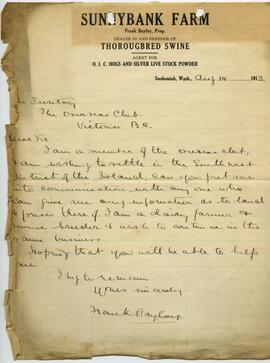 SUNNYBANK FARM
Frank Bayley, Prop.
DEALER IN AND BREEDER OF
THOROUGBRED SWINE
AGENT FOR
O. I. C. HOGS AND SILVER LIVE STOCK POWDER
Snohomish, Wash., Aug 14 1913
Secretary
The Overseas Club
Victoria B.C.
Dear Sir
I am a member of the overseas club,
I am wishing to settle in the Southwest
district of the Island, can you put me
into communication with any one who
can give me any information as to land
& prices there of, I am a dairy farmer &
swine breeder & wish to continue in the
same business
Hoping that you will be able to help
me
I beg to remain
Yours sincerely
Frank Bayley